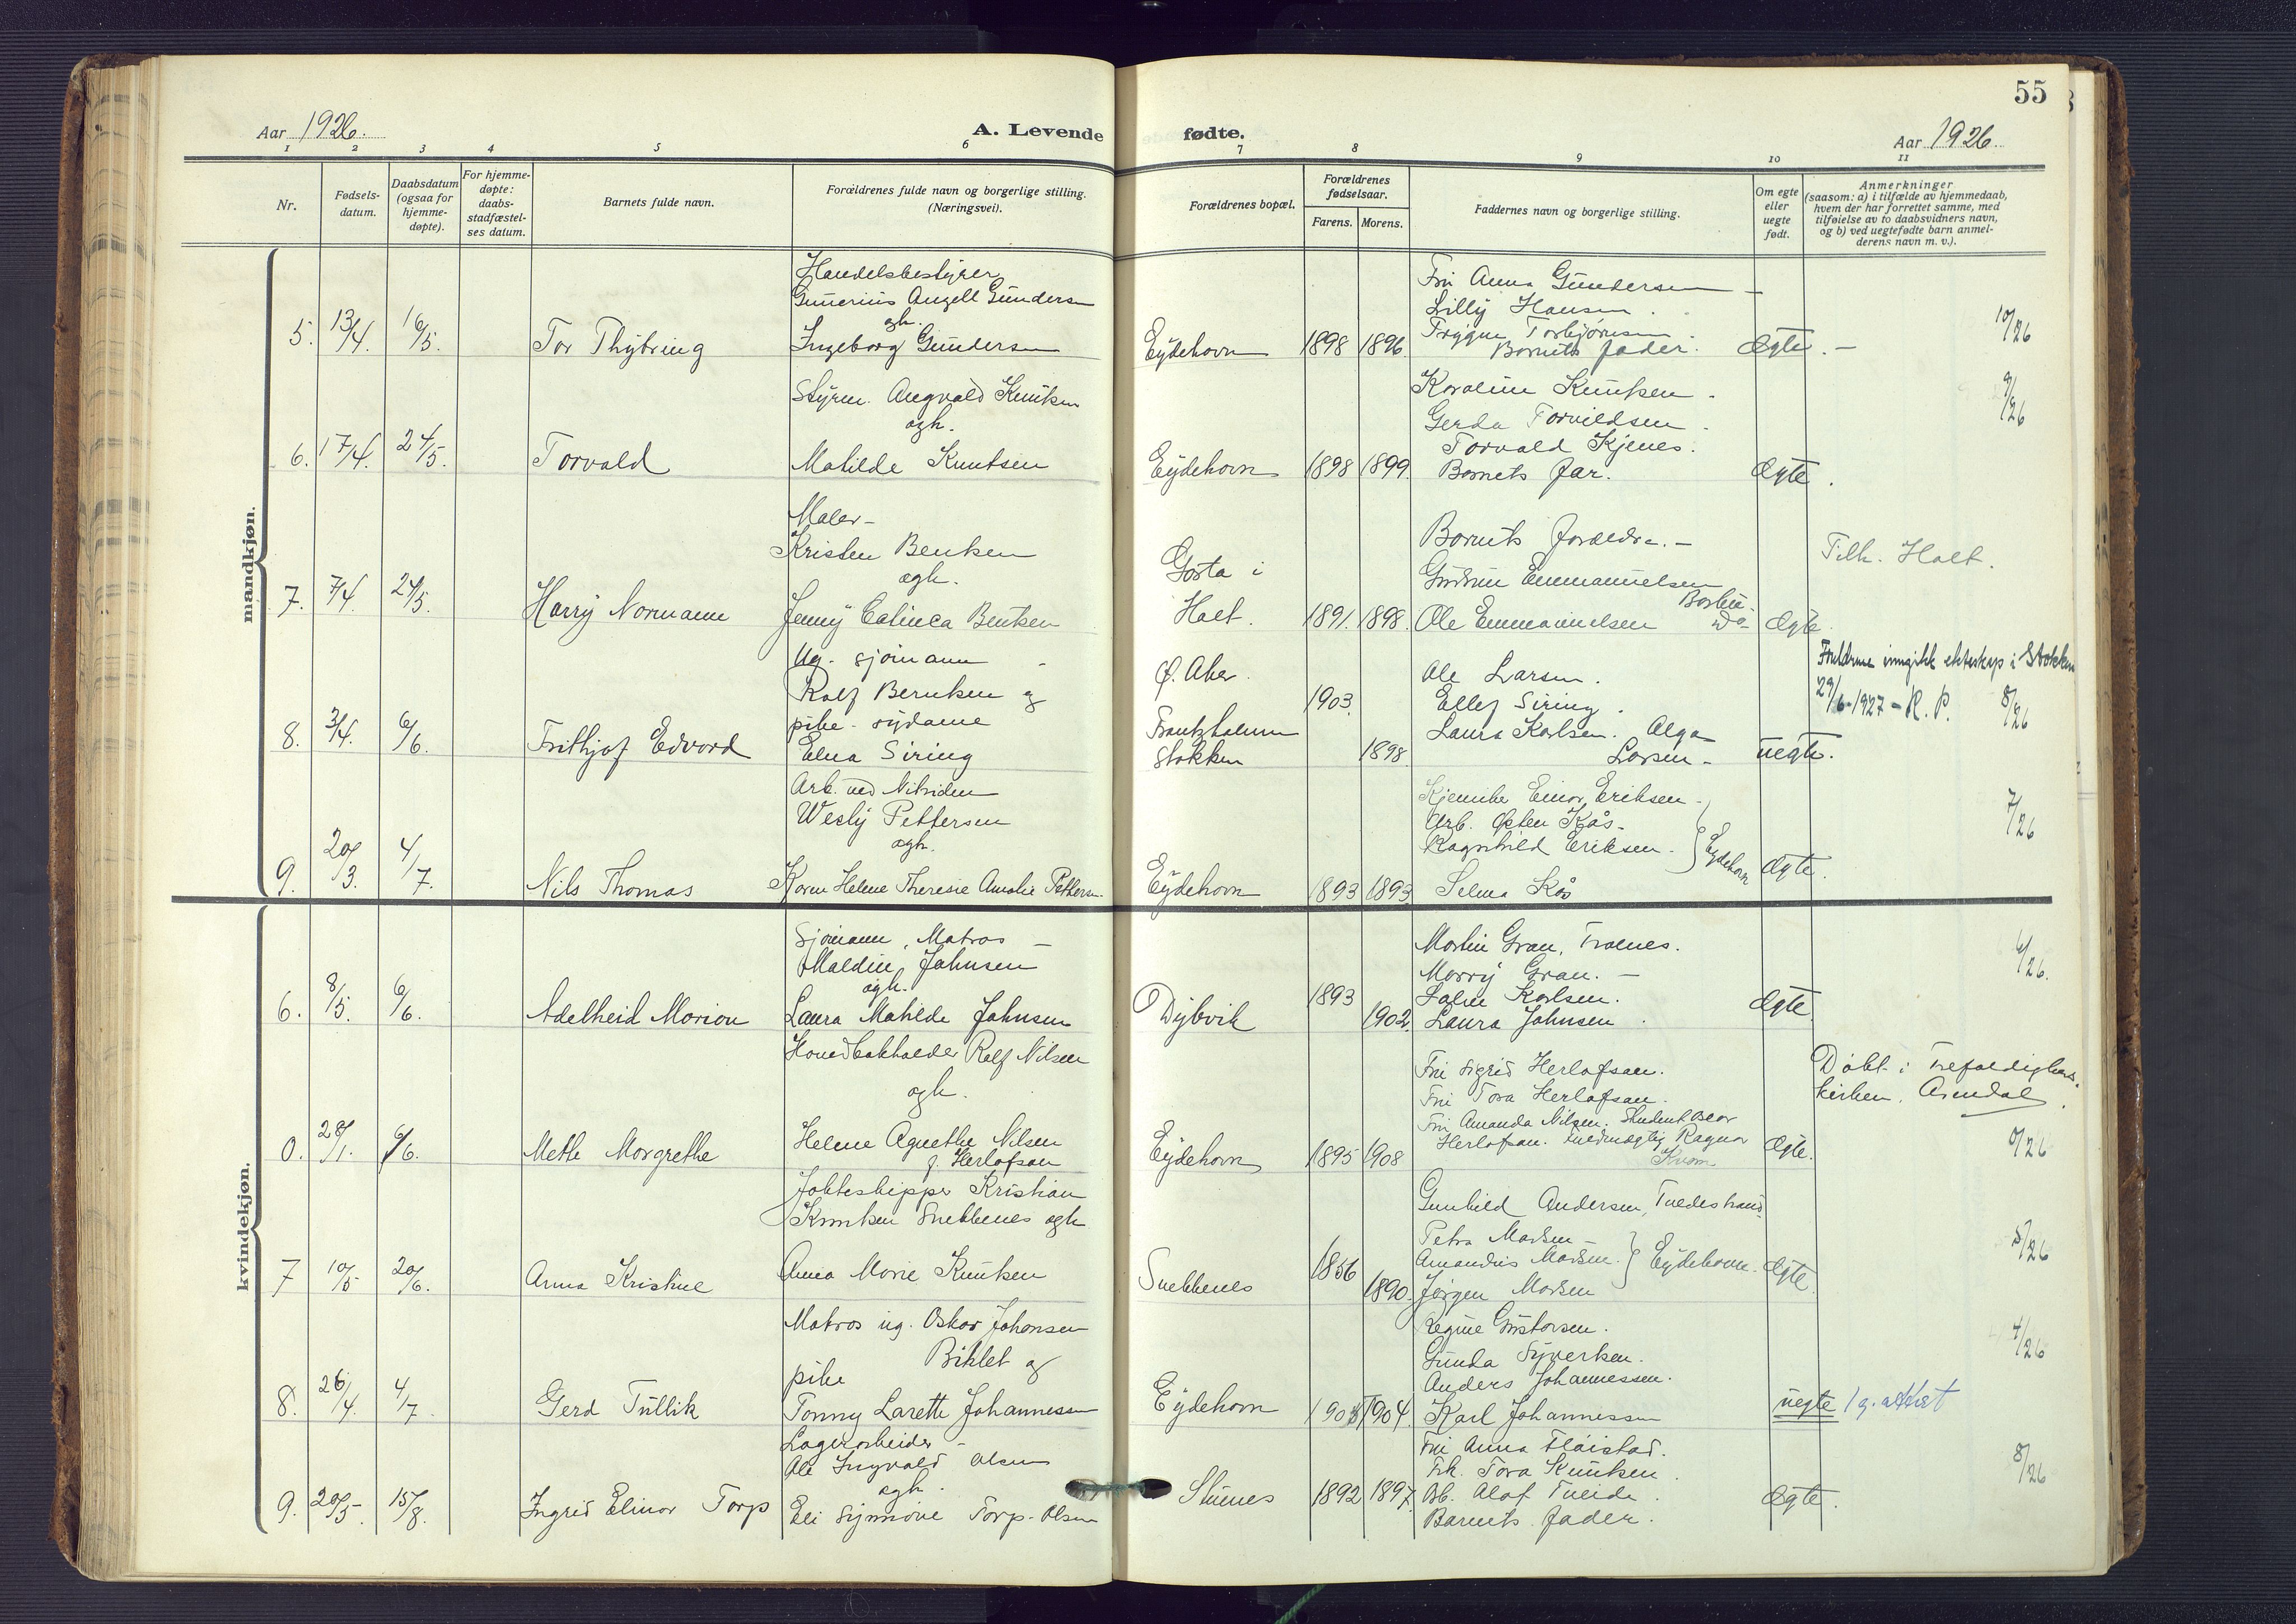 55
Aar 1926.
A. Levende fødte.
Aar 1926.
1 2 3 4 5 6 7 8 9 10 11
Nr.
Fødsels-
datum.
Daabsdatum
(ogsaa for
hjemme-
døpte).
For hjemme-
døpte:
daabs-
stadfæstel-
ses datum.
Barnets fulde navn.
Forældrenes fulde navn og borgerlige stilling.
(Næringsvei).
Forældrenes bopæl.
Forældrenes
fødselsaar.
Farens. Morens.
Faddernes navn og borgerlige stilling.
Om egte
eller
uegte
født.
Anmerkninger
(saasom: a) i tilfælde av hjemmedaab,
hvem der har forrettet samme, med
tilføielse av to daabsvidners navn,
og b) ved uegtefødte barn anmel-
derens navn m. v.).
mandkjøn.
5. 13/4. 16/5. Tor Thybring
Handelsbestyrer
Gunerius Angell Gundersen
ogh.
Ingeborg Gundersen
Eydehavn 1898 1896
Fru Anna Gundersen
Lilly Hansen.
Trygve Torbjørnsen
Barnets fader.
Ægte. 10/26
6. 17/4. 24/5. Torvald
Styrm. Angvald Knutsen
ogh.
Matilde Knutsen
Eydehavn 1898 1899.
Karoline Knutsen.
Gerda Torvildsen.
Torvald Kjenes.
Barnets far.
Ægte. 9/26
7. 7/4. 24/5. Harry Normann
Maler
Kristen Bentsen
ogh.
Jenny Calinca Bentsen
Gosta i
Holt. 1891. 1898.
Barnets forældre.
Gudrun Emmanuelsen
Ole Emmanuelsen do
Ægte. Tilh. Holt.
8. 3/4. 6/6. Frithjof Edvard
Ug. sjømann
Rolf Berntsen og
pike - sydame
Elna Siring
Ø. Aker.
Frantzholmen
Stokken
1903.
1898.
Ole Larsen.
Ellef Siring.
Laura Karlsen. Olga
Larsen
uegte.
Foreldrene inngikk ekteskap i Stokken
29/6-1927 - R. P. 8/26
9. 20/3. 4/7. Nils Thomas
Arb. ved Nitriden
Wesly Pettersen
ogh.
Karen Helene Theresie Amalie Pettersen
Eydehavn 1893 1893
Einar Eriksen
Arb. Kås
Ragnhild Eriksen.
Selma Kås
Eydehavn
Ægte. 7/26
kvindekjøn.
6. 8/5. 6/6. Adelheid Marion
Sjømann, Matros
Maldin Johnsen
ogh.
Laura Matilde Johnsen
Dybvik 1893
1902.
Martin Gran, Tronæs.
Marry Gran.
Karlsen.
Laura Johnsen.
Ægte. 6/26.
0. 28/1. 6/6. Mette Margrethe
Hovedbokholder Rolf Nilsen
ogh.
Helene Agnethe Nilsen
f. Herlofson
Eydehavn 1895 1908
Fru Sigrid Herlofson.
Fru Tora Herlofson.
Fru Amanda Nilsen. Student Oscar
Herlofson. Fuldmægtig Ragnar
Kvam
Ægte.
Døbt i Trefoldigheds-
kirken. Arendal
0/26
7 10/5 20/6. Anna Kristine
Jakteskipper Kristian
Knutsen Snebbenes ogh
Anna Marie Knutsen
Snebbenes 1856
1890.
Gunhild Andersen, Tvedestrand
Petra Madsen
Amandus Madsen.
Jørgen Madsen
Eydehavn.
Ægte. 5/26
8. 26/4. 4/7. Gerd Tullik
Matros ug. Oskar Johansen
Biklet og
pike
Tonny Larette Johannessen
Eydehavn 1905 1904.
Regine Gustavsen.
Gunda Syvertsen.
Anders Johannessen.
Karl Johannessen
uegte / g. attest 4/26
9. 20/5 15/8. Ingrid Elinor Torp
Lagerarbeider
Ole Ingvald Olsen
ogh.
Eli Synnøve Torp-Olsen
Stuenes 1892 1897.
Fru Anna Fløistad.
Frk. Tora Knutsen.
Olaf Tveide.
Barnets fader.
Ægte. 8/26